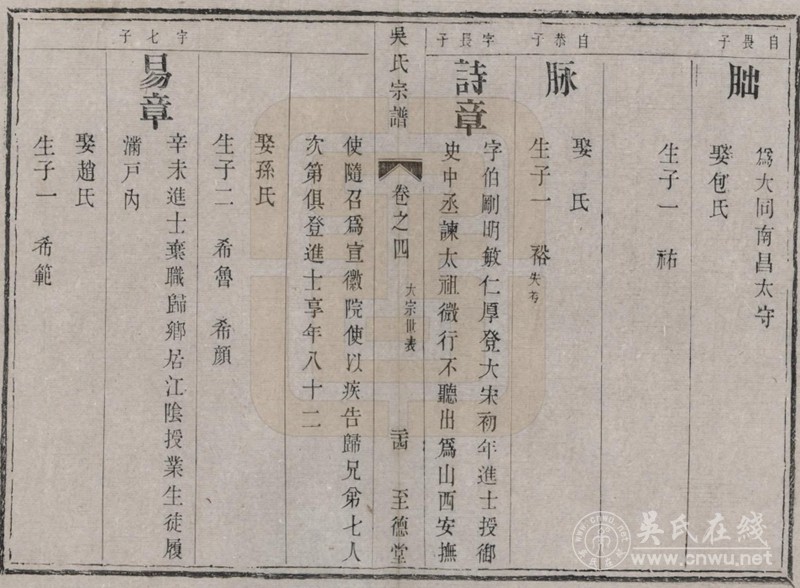 自㫤子
朏
為大同南昌太守
娶包氏
生子一　祐
自恭子
脉
娶　氏
生子一　裕失考
字長子
詩章
字伯剛明敏仁厚登大宋初年進士授御
史中丞諫太祖微行不聽出為山西安撫
吳氏宗譜
卷之四
大宗世表
至德堂
使隨召為宣徽院使以疾告歸兄弟七人
次第俱登進士享年八十二
娶孫氏
生子二　希魯　希顏
字七子
易章
辛未進士棄職歸鄉居江陰授業生徒履
滿戸內
娶趙氏
生子一　希範
吴氏在线
www.cnwu.net